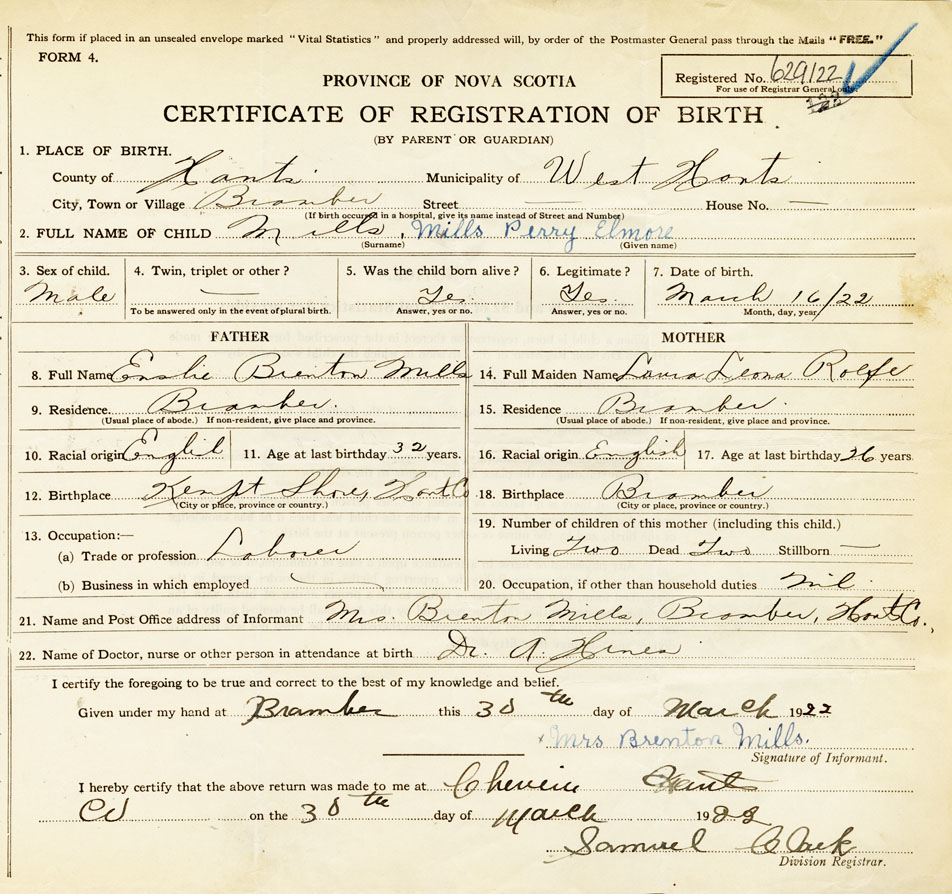 This form if placed in an unsealed envelope marked "Vital Statistics" and properly addressed will, by order of the Postmaster General pass through the Mails "FREE."
FORM 4.
PROVINCE OF NOVA SCOTIA
Registered No. 629/22
For use of Registrar General only.
CERTIFICATE OF REGISTRATION OF BIRTH
(BY PARENT OR GUARDIAN)
1. PLACE OF BIRTH.
County of Hants Municipality of West Hants
City, Town or Village Bramber Street — House No. —
(If birth occurred in a hospital, give its name instead of Street and Number)
2. FULL NAME OF CHILD Mills, Mills Perry Elmore
(Surname) (Given name)
3. Sex of child. 4. Twin, triplet or other? 5. Was the child born alive? 6. Legitimate? 7. Date of birth.
Male — Yes Yes. March 16/22
To be answered only in the event of plural birth. Answer, yes or no. Answer, yes or no. Month, day, year
FATHER MOTHER
8. Full Name Enslie Brenton Mills 14. Full Maiden Name Laura Leona Rolfe
9. Residence. Bramber. 15. Residence Bramber.
(Usual place of abode.) If non-resident, give place and province. (Usual place of abode.) If non-resident, give place and province.
10. Racial origin English 11. Age at last birthday 32 years. 16. Racial origin English 17. Age at last birthday 26 years
12. Birthplace Kempt Shore, Hants Co 18. Birthplace Bramber
(City or place, province or country.) (City or place, province or country.)
13. Occupation:— 19. Number of children of this mother (including this child.)
(a) Trade or profession Laborer Living Two Dead Two Stillborn —
(b) Business in which employed — 20. Occupation, if other than household duties Nil.
21. Name and Post Office address of Informant Mrs. Brenton Mills, Bramber, Hants Co.,
22. Name of Doctor, nurse or other person in attendance at birth Dr. A.
I certify the foregoing to be true and correct to the best of my knowledge and belief.
Given under my hand at Bramber this 30th day of March 1922
x Mrs Brenton Mills.
Signature of Informant.
I hereby certify that the above return was made to me at Hants
Co on the 30th day of March 1922
Samuel Clark
Division Registrar.